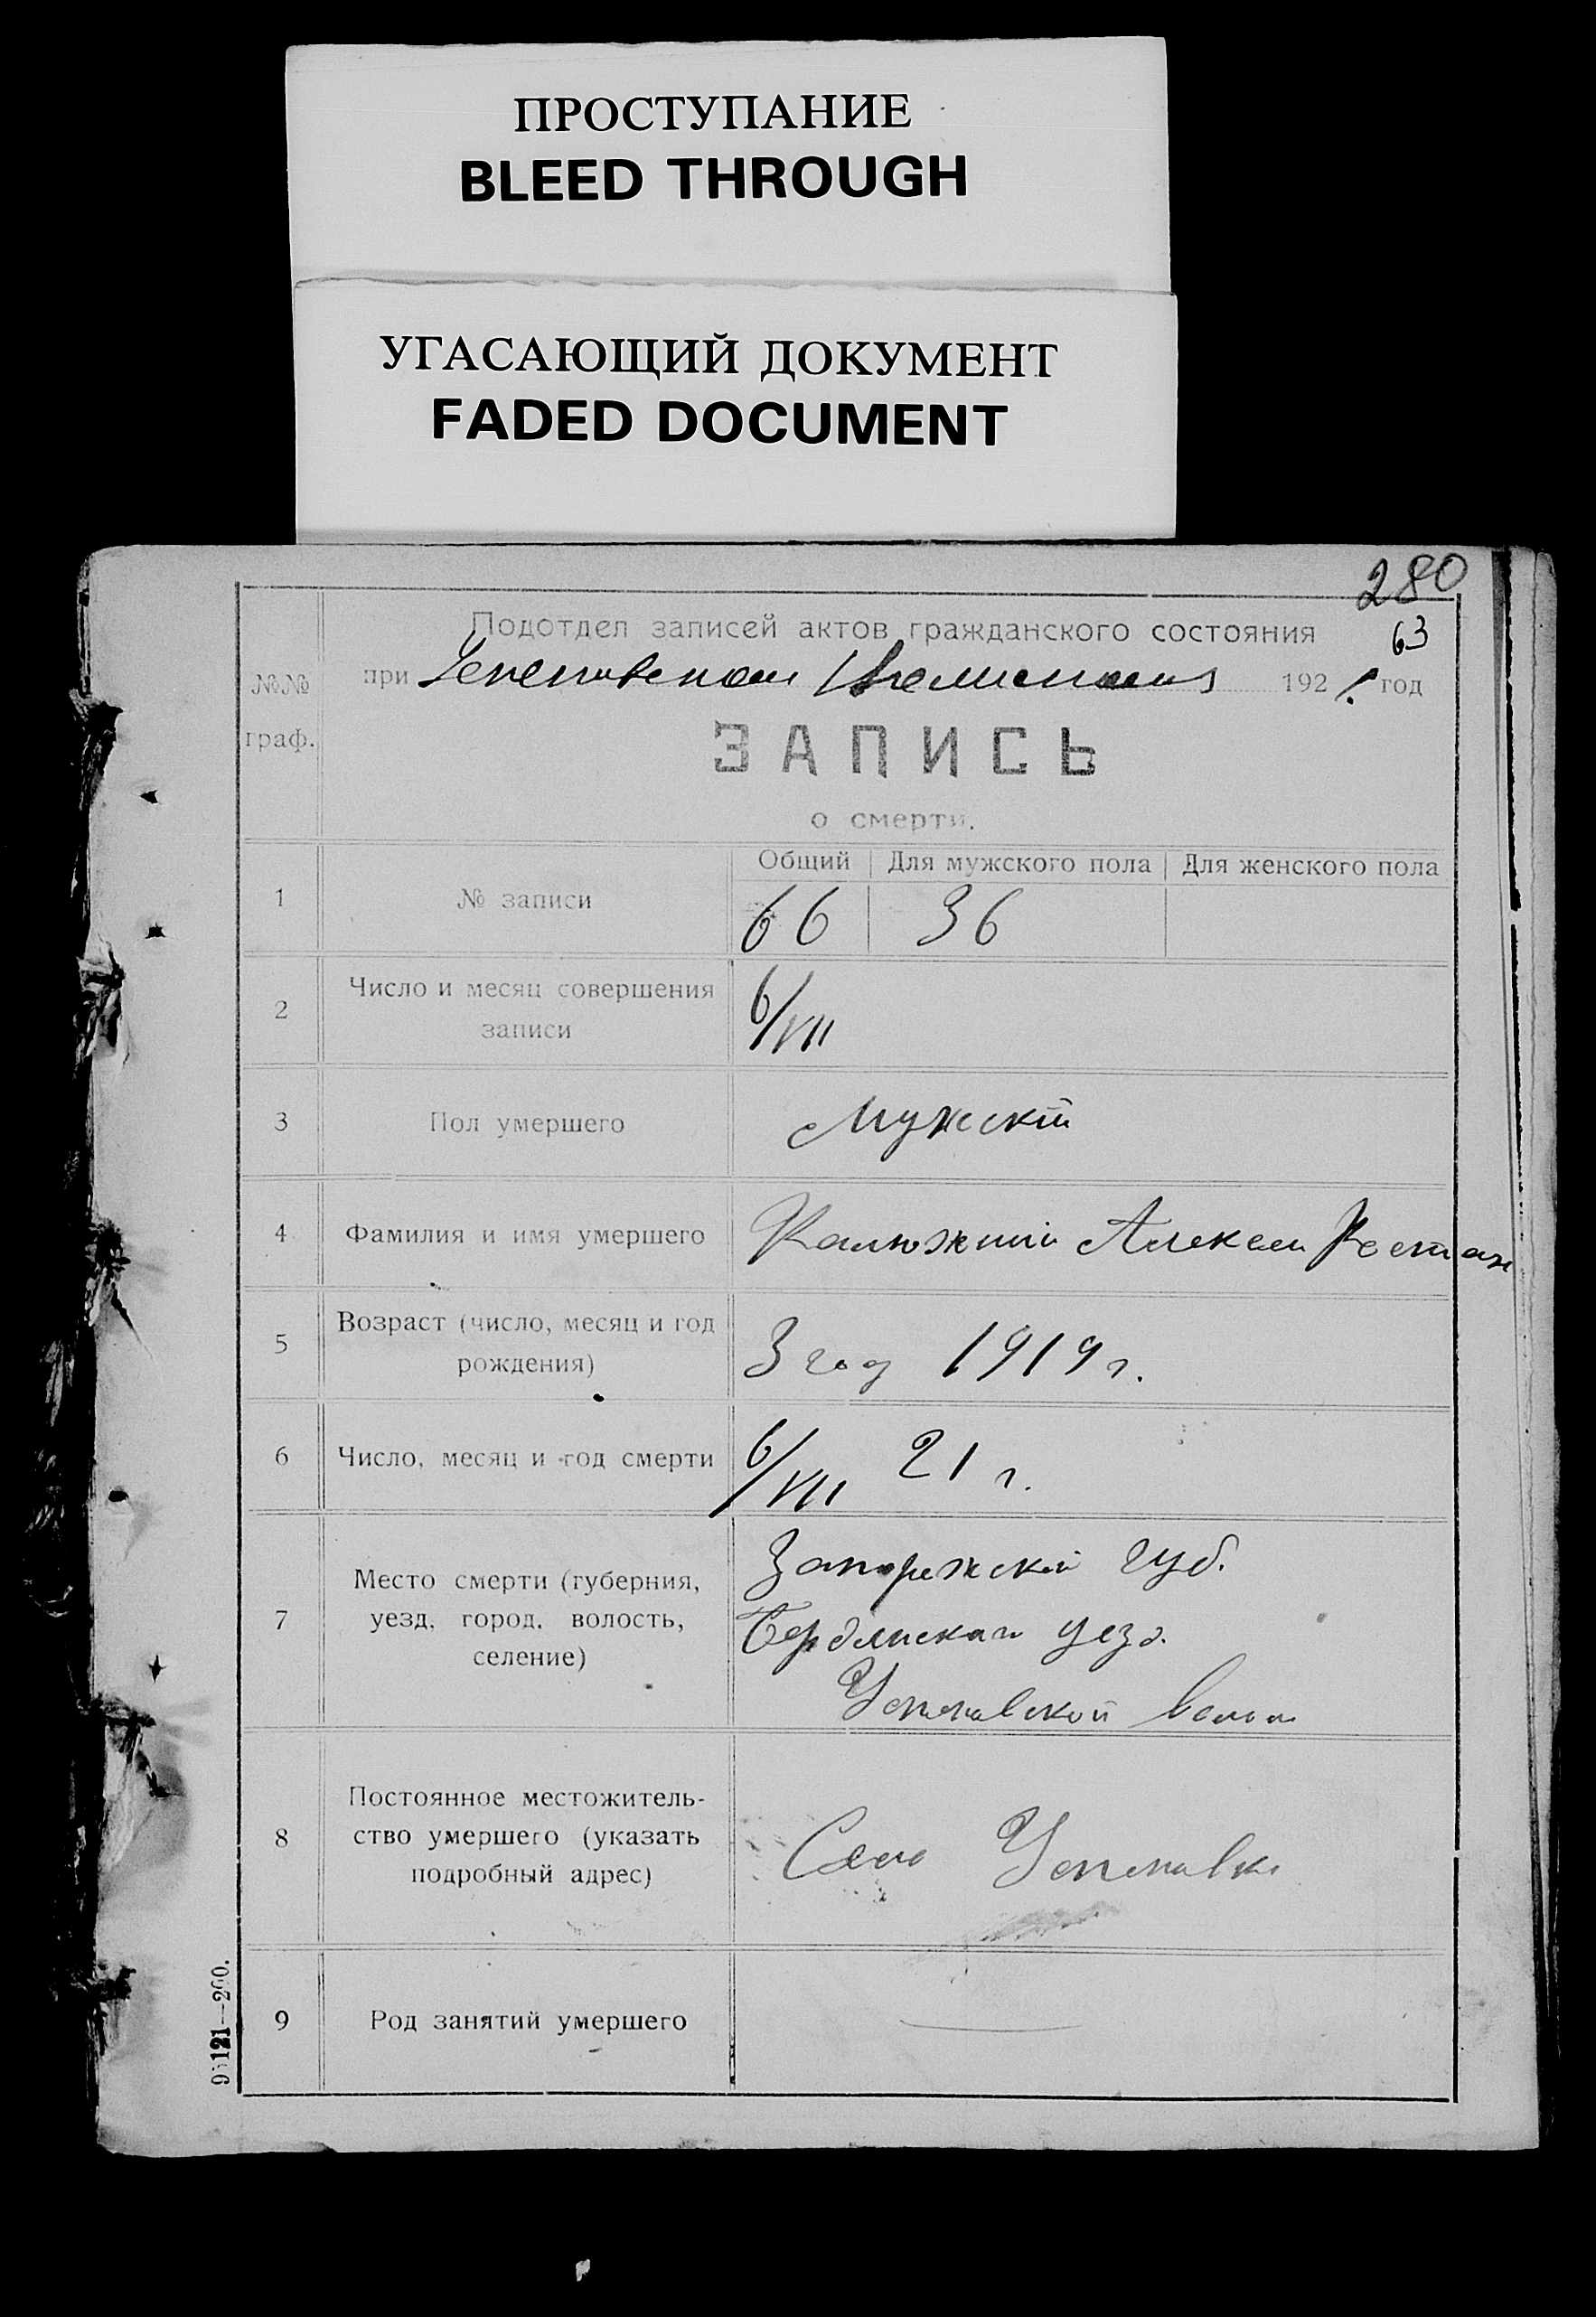 ПРОСТУПАНИЕ
BLEED THROUGH
УГАСАЮЩИЙ ДОКУМЕНТ
FADED DOCUMENT
280
63
Подотдел записей актов гражданского состояния
при 1921 год
№№ граф.
ЗАПИСЬ
о смерти.
Общий Для мужского пола Для женского пола
1 № записи 66 36
2 Число и месяц совершения
записи 6/VII
3 Пол умершего Мужскій
4 Фамилия и имя умершего Калюжний Алексей
5 Возраст (число, месяц и год
рождения) 3 год 1919 г.
6 Число, месяц и год смерти 6/VII 21 г.
7 Место смерти (губерния,
уезд, город, волость,
селение)
губ.
уезд.
8 Постоянное местожитель-
ство умершего (указать
подробный адрес)
Село
9 Род занятий умершего